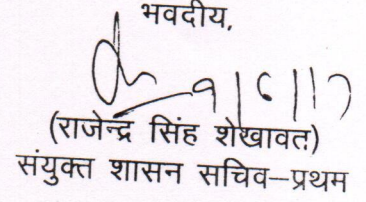 भवदीय,
9/6/17
(राजेन्द्र सिंह शेखावत)
संयुक्त शासन सचिव–प्रथम